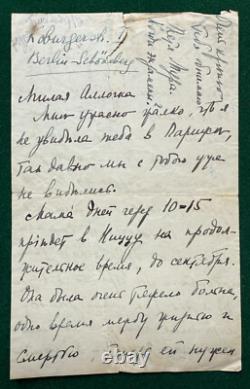 Koburgerstr. 9
Berlin-Schöneberg
Милая Аллочка
Мне ужасно жалко, что я
не увидила тебя в Париже,
так давно мы с тобою уже
не видѣлись.
Мама дней через 10-15
прiѣдет в Ниццу на продол-
жительное время, до сентября.
Она была очень тяжело больна,
одно время между жизнью и
смертью. ей нужен